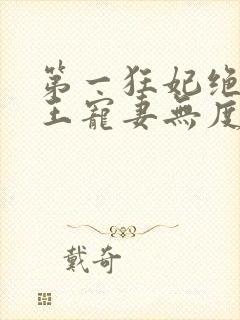 第一狂妃绝
王寵妻無度
戴奇